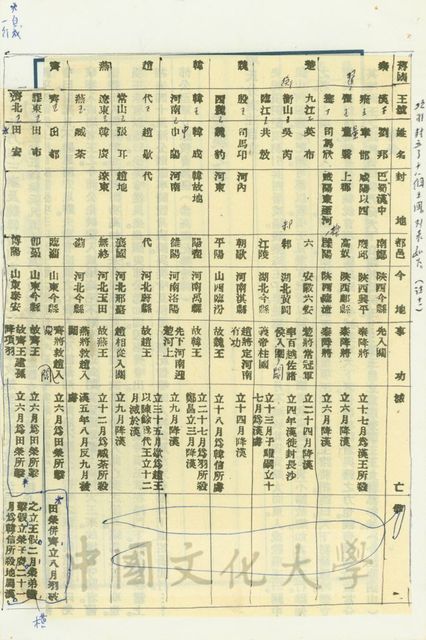 舊國 王號 姓名 封地 都邑 今地 事功 滅亡
秦 漢王 劉邦 巴蜀漢中 南鄭 陝西今縣 先入關
雍王 章邯 咸陽以西 廢邱 陝西興平 秦降將 立十七月為漢王所殺
董翳 上郡 高奴 陝西膚施 秦降將 立六月降漢
司馬欣 咸陽東至河 櫟陽 陝西臨潼 秦降將 立六月降漢
楚 九江王 英布 六 安徽六安 楚將常冠軍 立二十四月降漢
衡山王 吳芮 邾 湖北黃岡 率百越佐諸侯入關 立四年漢徙封長沙
臨江王 共敖 江陵 湖北今縣 義帝柱國 立十三月子驩嗣立十七月為漢虜
魏 殷王 司馬卬 河內 朝歌 河南淇縣 趙將定河南有功 立十四月降漢
西魏王 魏豹 河東 平陽 山西臨汾 故魏王 立十八月為韓信所虜
韓 韓王 韓成 韓故地 陽翟 河南禹縣 故韓王 立二十七月為羽所殺鄭昌立三月降漢
河南王 申陽 河南 雒陽 河南洛陽 先下河南迎楚河上 立九月降漢
趙 代王 趙歇 代 代 河北蔚縣 故趙王 立三十五月歇為趙王以陳餘為代王立十二月滅於漢
常山王 張耳 趙地 襄國 河北邢臺 趙相從入關 立九月降漢
燕 遼東王 韓廣 遼東 無終 河北玉田 故燕王 立十二月為臧荼所殺
燕王 臧荼 薊 河北今縣 燕將救趙入關 漢五年八月反九月被虜
齊 齊王 田都 臨淄 山東今縣 齊將救趙入關 立六月為田榮所擊
膠東王 田市 即墨 山東今縣 故齊王 立六月為田榮所擊
濟北王 田安 博陽 山東泰安 故齊王建孫降項羽 立六月為田榮所擊
田榮併齊立八月羽破
之立王假二月榮弟橫
擊假立榮子廣二十一
月為韓信所殺地屬漢
中國文化大學